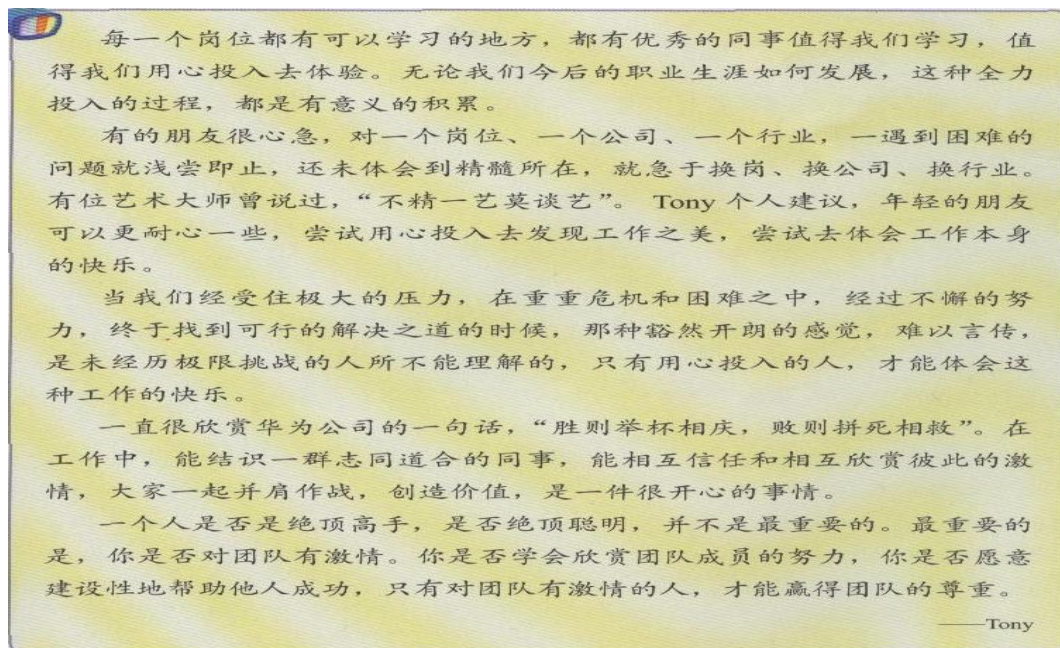 每一个岗位都有可以学习的地方，都有优秀的同事值得我们学习，值
得我们用心投入去体验。无论我们今后的职业生涯如何发展，这种全力
投入的过程，都是有意义的积累。
有的朋友很心急，对一个岗位、一个公司、一个行业，一遇到困难的
问题就浅尝即止，还未体会到精髓所在，就急于换岗、换公司、换行业。
有位艺术大师曾说过，“不精一艺莫谈艺”。 Tony 个人建议，年轻的朋友
可以更耐心一些，尝试用心投入去发现工作之美，尝试去体会工作本身
的快乐。
当我们经受住极大的压力，在重重危机和困难之中，经过不懈的努
力，终于找到可行的解决之道的时候，那种豁然开朗的感觉，难以言传，
是未经历极限挑战的人所不能理解的，只有用心投入的人，才能体会这
种工作的快乐。
一直很欣赏华为公司的一句话，“胜则举杯相庆，败则拼死相救”。在
工作中，能结识一群志同道合的同事，能相互信任和相互欣赏彼此的激
情，大家一起并肩作战，创造价值，是一件很开心的事情。
一个人是否是绝顶高手，是否绝顶聪明，并不是最重要的。最重要的
是，你是否对团队有激情。你是否学会欣赏团队成员的努力，你是否愿意
建设性地帮助他人成功，只有对团队有激情的人，才能赢得团队的尊重。
——Tony